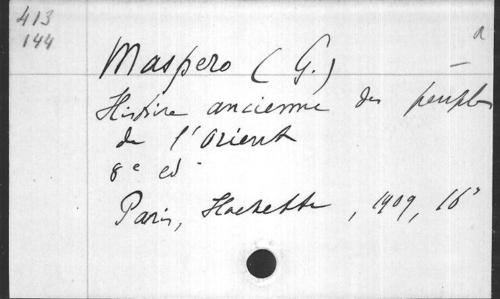 413
144
a
Maspero (G.)
Histoire ancienne des peuples
de l'Orient
8e ed.
Paris, Hachette, 1909, 16°